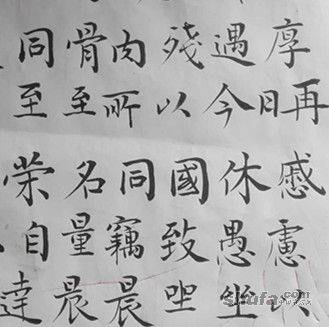 同骨肉殘遇厚
至至所以今日再
榮名同國休慼
自量竊致愚慮
達晨晨坐坐以